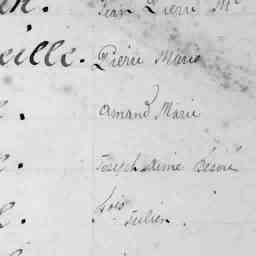 Jean Pierre M
eille. Pierre Marie
Amand Marie
Joseph Aimé Désiré
fois
Julien.